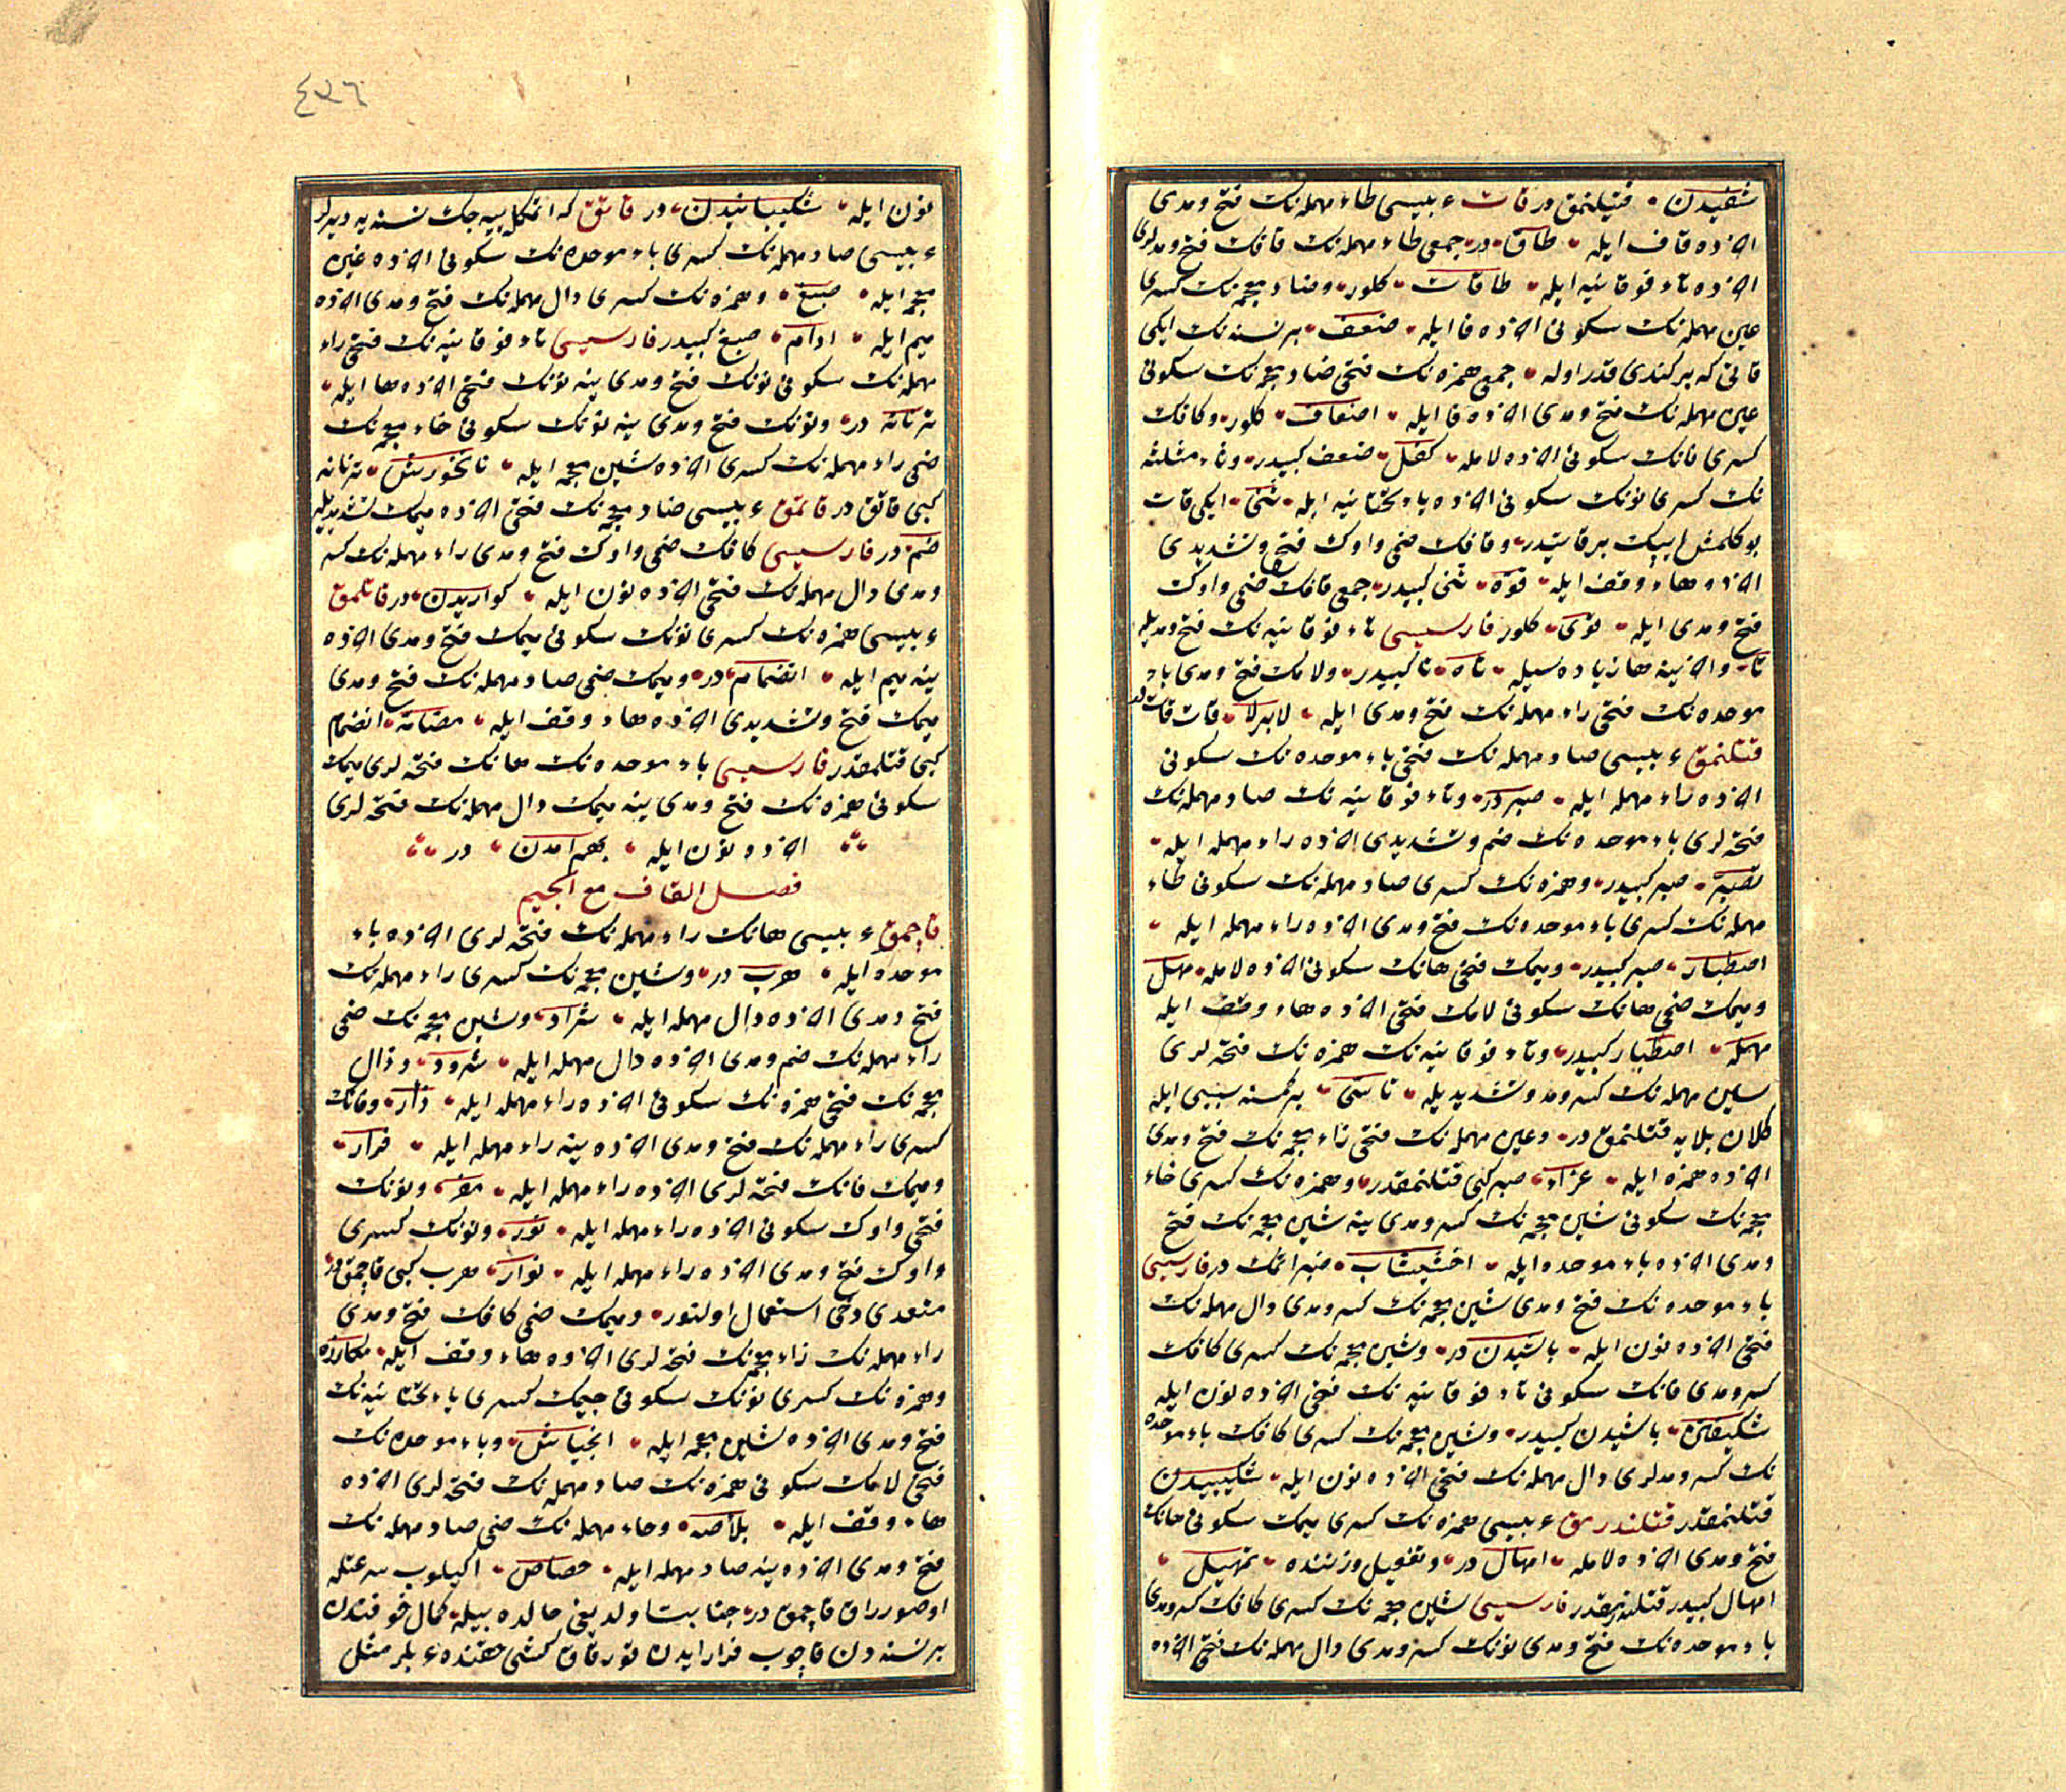 شفیدن • فتیلنمق در قات ء بیسی طاء مهمله نك فتح و مدی
اخرده قاف ایله • طاق • در • جمعی طاء مهمله نك قافك فتح و مدلری
اخرده تاء فوقانیه ایله • طاقات • كلور • و ضاد معجمه نك كسری
عین مهمله نك سكونی اخرده فا ایله • ضعف • بر نسنه نك ایكی
قاتی كه بر كندی قدر اوله • جمعی همزه نك فتحی ضاد معجمه نك سكونی
عین مهمله نك فتح و مدی اخرده فا ایله • اضعاف • كلور • و كافك
كسری فانك سكونی اخرده لامله • كفل • ضعف كبیدر • و ثاء مثلثه
نك كسری نونك سكونی اخرده یاء تحتانیه ایله • ثنی • ایكی قات
بوكلمش ایپك بر قاتیدر • و قافك ضمی واوك فتح و تشدیدی
اخرده هاء وقف ایله • قوه • ثنی كبیدر • جمعی قافك ضمی واوك
فتح و مدی ایله • قوی • كلور فارسیسی تاء فوقانیه نك فتح و مدیله
تا • و اخرینه ها زیاده سیله • تاه • تا كبیدر • و لامك فتح و مدی باء
موحده نك فتحی راء مهمله نك فتح و مدی ایله • لابرلا • قات قات در
قتلنمق ء بیسی صاد مهمله نك فتحی باء موحده نك سكونی
اخرده راء مهمله ایله • صبر در • و تاء فوقانیه نك صاد مهمله نك
فتحه لری باء موحده نك ضم و تشدیدی اخرده راء مهمله ایله •
تصبر • صبر كبیدر • و همزه نك كسری صاد مهمله نك سكونی طاء
مهمله نك كسری باء موحده نك فتح و مدی اخرده راء مهمله ایله •
اصطبار • صبر كبیدر • و میمك فتحی هانك سكونی اخرده لامله • مهل
و میمك ضمی هانك سكونی لامك فتحی اخرده هاء وقف ایله
مهله • اصطبار كبیدر • و تاء فوقانیه نك همزه نك فتحه لری
سین مهمله نك كسر و مد و تشدیدیله • تاسی • بر كمسنه سببی ایله
كلان بلایه قتلنمق در • و عین مهمله نك فتحی زاء معجمه نك فتح و مدی
اخرده همزه ایله • عزاء • صبر كبی قتلنمقدر • و همزه نك كسری خاء
معجمه نك سكونی شین معجمه نك كسر و مدی ینه شین معجمه نك فتح
و مدی اخرده باء موحده ایله • اخشیشاب • صبر اتمك در فارسیسی
باء موحده نك فتح و مدی شین معجمه نك كسر و مدی دال مهمله نك
فتحی اخرده نون ایله • باشیدن در • و شین معجمه نك كسری كافك
كسر و مدی فانك سكونی تاء فوقانیه نك فتحی اخرده نون ایله
شكیفتن • باشیدن كبیدر • و شین معجمه نك كسری كافك باء موحده
نك كسر و مدلری دال مهمله نك فتحی اخرده نون ایله • شكیبیدن
قتلنمقدر قتلندرمق ء بیسی همزه نك كسری میمك سكونی هانك
فتح و مدی اخرده لامله • امهال در • و تفعیل وزننده • تمهیل •
امهال كبیدر قتلندرمقدر فارسیسی شین معجمه نك كسری كافك كسر و مدی
باء موحده نك فتح و مدی نونك كسر و مدی دال مهمله نك فتحی اخرده
٤٢٦
نون ایله • شكیبانیدن • در قاتق كه اتمكله ییه جك نسنه یه دیرلر
ء بیسی صاد مهمله نك كسری باء موحده نك سكونی اخرده غین
معجمه ایله • صبغ • و همزه نك كسری دال مهمله نك فتح و مدی اخرده
میم ایله • ادام • صبغ كبیدر فارسیسی تاء فوقانیه نك فتحی راء
مهمله نك سكونی نونك فتح و مدی ینه نونك فتحی اخرده ها ایله •
ترنانه در • و نونك فتح و مدی ینه نونك سكونی خاء معجمه نك
ضمی راء مهمله نك كسری اخرده شین معجمه ایله • نانخورش • ترنانه
كبی قاتق در قاتمق ء بیسی ضاد معجمه نك فتحی اخرده میمك تشدیدیله
ضم در فارسیسی كافك ضمی واوك فتح و مدی راء مهمله نك كسر
و مدی دال مهمله نك فتحی اخرده نون ایله • كواریدن • در قاتلمق
ء بیسی همزه نك كسری نونك سكونی میمك فتح و مدی اخرده
ینه میم ایله • انضمام در • و میمك ضمی صاد مهمله نك فتح و مدی
میمك فتح و تشدیدی اخرده هاء وقف ایله • مضامه • انضمام
كبی قتلمقدر فارسیسی باء موحده نك هانك فتحه لری میمك
سكونی همزه نك فتح و مدی ینه میمك دال مهمله نك فتحه لری
اخرده نون ایله • بهم آمدن • در
فصل القاف مع الجیم
قاچمق ء بیسی هانك راء مهمله نك فتحه لری اخرده باء
موحده ایله • هرب در • و شین معجمه نك كسری راء مهمله نك
فتح و مدی اخرده دال مهمله ایله • شراد • و شین معجمه نك ضمی
راء مهمله نك ضم و مدی اخرده دال مهمله ایله • شرود • و ذال
معجمه نك فتحی همزه نك سكونی اخرده راء مهمله ایله • ذأر • و فانك
كسری راء مهمله نك فتح و مدی اخرده ینه راء مهمله ایله • فرار •
و میمك فانك فتحه لری اخرده راء مهمله ایله • مفر • و نونك
فتحی واوك سكونی اخرده راء مهمله ایله • نور • و نونك كسری
واوك فتح و مدی اخرده راء مهمله ایله • نوار • هرب كبی قاچمق در
متعدی دخی استعمال اولنور • و میمك ضمی كافك فتح و مدی
راء مهمله نك زاء معجمه نك فتحه لری اخرده هاء وقف ایله • مكارزه
و همزه نك كسری نونك سكونی جیمك كسری یاء تحتانیه نك
فتح و مدی اخرده شین معجمه ایله • انجیاش • و باء موحده نك
فتحی لامك سكونی همزه نك صاد مهمله نك فتحه لری اخرده
هاء وقف ایله • بلأصه • و حاء مهمله نك ضمی صاد مهمله نك
فتح و مدی اخرده ینه صاد مهمله ایله • حصاص • اكیلوب سرعتله
اوصوررق قاچمق در • جنابت اولدیغی حالده بیله • كمال خوفندن
بر نسنه دن قاچوب فرار ایدن قورقاق كشی حقنده ء بلر مثل